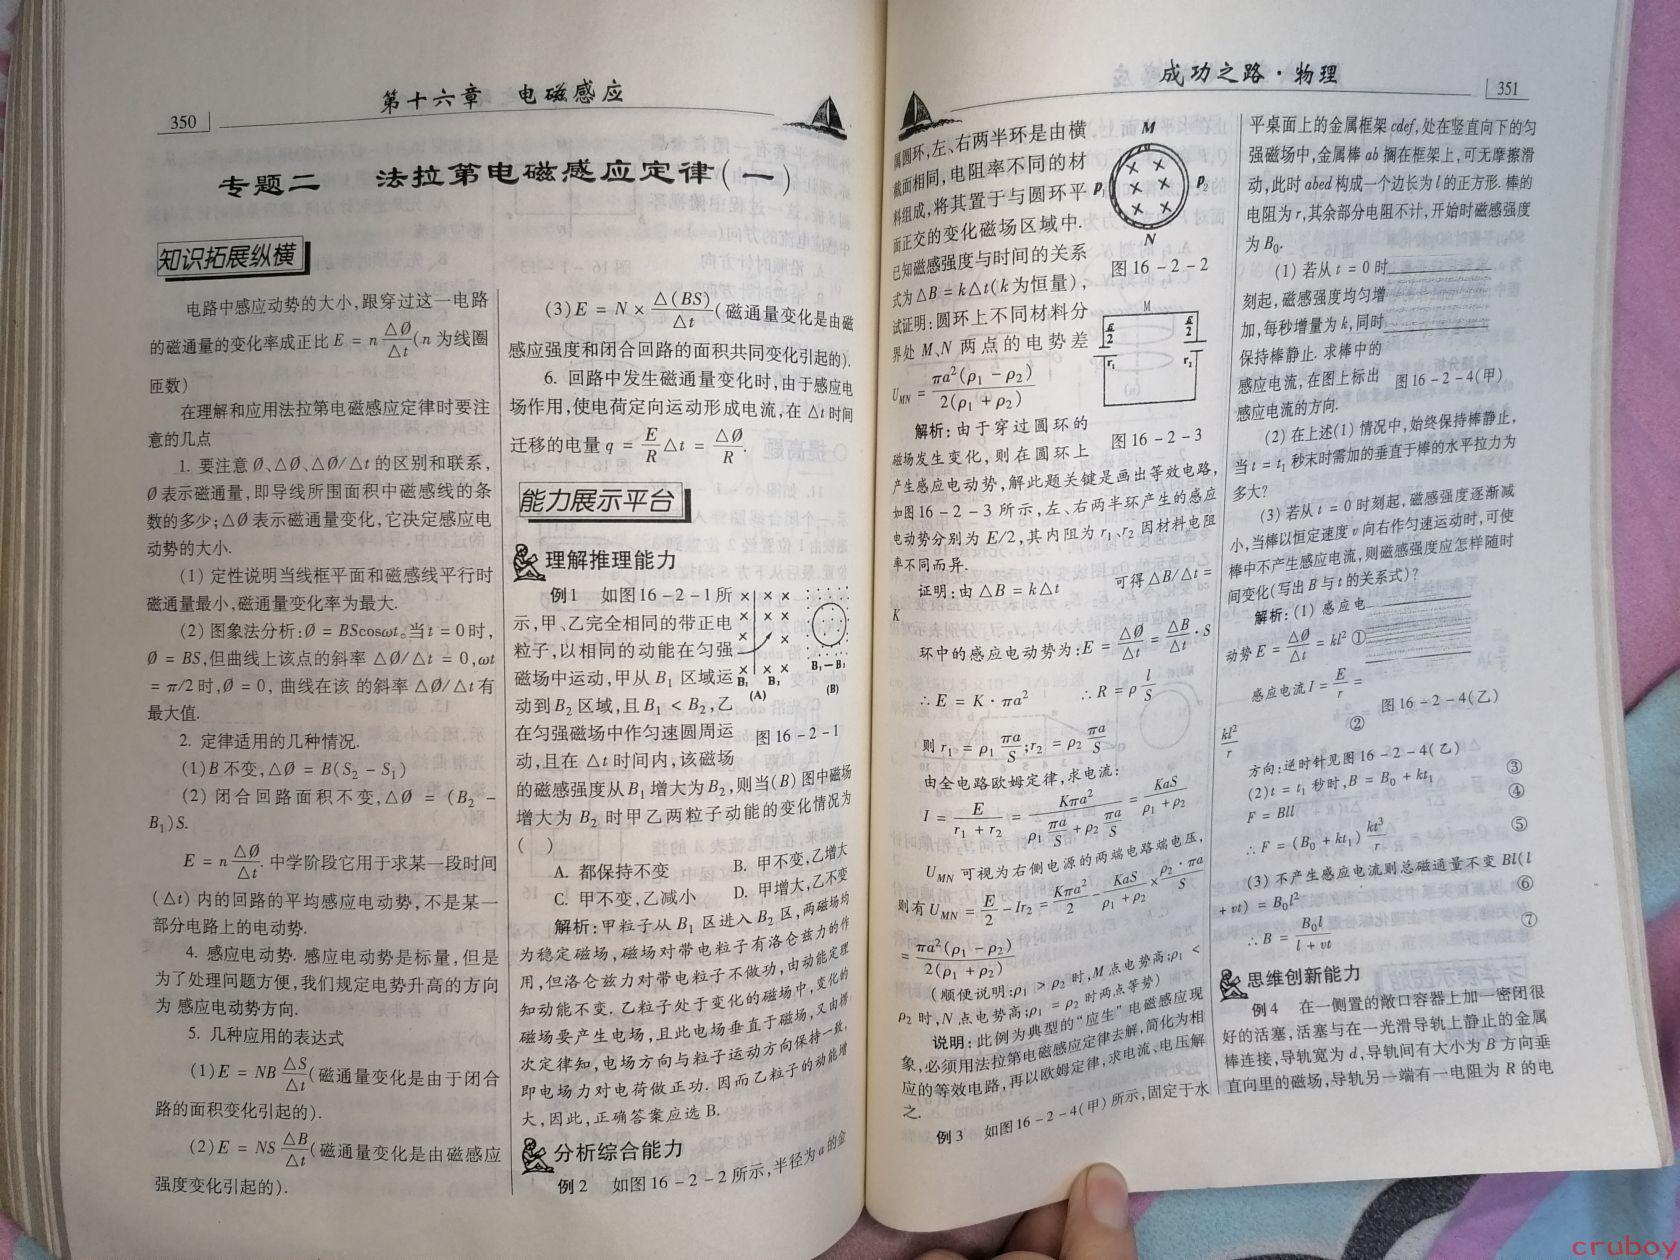 350
第十六章 电磁感应
专题二 法拉第电磁感应定律(一)
知识拓展纵横
电路中感应动势的大小,跟穿过这一电路
的磁通量的变化率成正比 E = n △Ø/△t (n 为线圈
匝数)
在理解和应用法拉第电磁感应定律时要注
意的几点
1. 要注意 Ø、△Ø、△Ø/△t 的区别和联系,
Ø 表示磁通量,即导线所围面积中磁感线的条
数的多少;△Ø 表示磁通量变化,它决定感应电
动势的大小.
(1) 定性说明当线框平面和磁感线平行时
磁通量最小,磁通量变化率为最大.
(2) 图象法分析:Ø = BScosωt。当 t = 0 时,
Ø = BS,但曲线上该点的斜率 △Ø/△t = 0,ωt
= π/2 时,Ø = 0, 曲线在该 的斜率 △Ø/△t 有
最大值.
2. 定律适用的几种情况.
(1)B 不变,△Ø = B(S₂ - S₁)
(2) 闭合回路面积不变,△Ø = (B₂ -
B₁)S.
E = n △Ø/△t. 中学阶段它用于求某一段时间
(△t) 内的回路的平均感应电动势,不是某一
部分电路上的电动势.
4. 感应电动势. 感应电动势是标量,但是
为了处理问题方便,我们规定电势升高的方向
为 感应电动势方向.
5. 几种应用的表达式
(1)E = NB △S/△t (磁通量变化是由于闭合
路的面积变化引起的).
(2)E = NS △B/△t (磁通量变化是由磁感应
强度变化引起的).
(3)E = N × △(BS)/△t (磁通量变化是由磁
感应强度和闭合回路的面积共同变化引起的).
6. 回路中发生磁通量变化时,由于感应电
场作用,使电荷定向运动形成电流,在 △t 时间
迁移的电量 q = E/R △t = △Ø/R.
能力展示平台
理解推理能力
例1 如图 16 - 2 - 1 所
示,甲、乙完全相同的带正电
粒子,以相同的动能在匀强
磁场中运动,甲从 B₁ 区域运
动到 B₂ 区域,且 B₁ < B₂,乙
在匀强磁场中作匀速圆周运
动,且在 △t 时间内,该磁场
的磁感强度从 B₁ 增大为 B₂,则当(B) 图中磁场
增大为 B₂ 时甲乙两粒子动能的变化情况为
( )
B₁ B₂
(A)
B₁—B₂
(B)
图 16 - 2 - 1
A. 都保持不变 B. 甲不变,乙增大
C. 甲不变,乙减小 D. 甲增大,乙不变
解析:甲粒子从 B₁ 区进入 B₂ 区,两磁场均
为稳定磁场,磁场对带电粒子有洛仑兹力的作
用,但洛仑兹力对带电粒子不做功,由动能定理
知动能不变. 乙粒子处于变化的磁场中,变化的
磁场要产生电场,且此电场垂直于磁场,又由楞
次定律知,电场方向与粒子运动方向保持一致,
即电场力对电荷做正功. 因而乙粒子的动能增
大,因此,正确答案应选 B.
分析综合能力
例2 如图 16 - 2 - 2 所示,半径为 a 的金
成功之路·物理
351
属圆环,左、右两半环是由横
截面相同,电阻率不同的材
料组成,将其置于与圆环平
面正交的变化磁场区域中.
已知磁感强度与时间的关系
式为 △B = k△t(k 为恒量),
试证明:圆环上不同材料分
界处 M、N 两点的电势差
U_MN = πa²(ρ₁ - ρ₂)/2(ρ₁ + ρ₂)
M
P₁ P₂
N
图 16 - 2 - 2
M
E/2 E/2
r₁ r₁
图 16 - 2 - 3
解析:由于穿过圆环的
磁场发生变化,则在圆环上
产生感应电动势,解此题关键是画出等效电路,
如图 16 - 2 - 3 所示,左、右两半环产生的感应
电动势分别为 E/2,其内阻为 r₁、r₂ 因材料电阻
率不同而异.
证明:由 △B = k△t 可得 △B/△t =
K
环中的感应电动势为:E = △Ø/△t = △B/△t · S
∴ E = K · πa² ∴ R = ρ l/S
则 r₁ = ρ₁ πa/S;r₂ = ρ₂ πa/S
由全电路欧姆定律,求电流:
I = E/(r₁ + r₂) = Kπa²/(ρ₁ πa/S + ρ₂ πa/S) = KaS/(ρ₁ + ρ₂)
U_MN 可视为右侧电源的两端电路端电压,
则有 U_MN = E/2 - Ir₂ = Kπa²/2 - KaS/(ρ₁ + ρ₂) × ρ₂ · πa/S
= πa²(ρ₁ - ρ₂)/2(ρ₁ + ρ₂)
(顺便说明:ρ₁ > ρ₂ 时,M 点电势高;ρ₁ <
ρ₂ 时,N 点电势高;ρ₁ = ρ₂ 时两点等势)
说明:此例为典型的“应生”电磁感应现
象,必须用法拉第电磁感应定律去解,简化为相
应的等效电路,再以欧姆定律,求电流、电压解
之.
例3 如图 16 - 2 - 4(甲) 所示,固定于水
平桌面上的金属框架 cdef,处在竖直向下的匀
强磁场中,金属棒 ab 搁在框架上,可无摩擦滑
动,此时 abed 构成一个边长为 l 的正方形. 棒的
电阻为 r,其余部分电阻不计,开始时磁感强度
为 B₀.
(1) 若从 t = 0 时
刻起,磁感强度均匀增
加,每秒增量为 k,同时
保持棒静止. 求棒中的
感应电流,在图上标出
感应电流的方向.
图 16 - 2 - 4(甲)
(2) 在上述(1) 情况中,始终保持棒静止,
当 t = t₁ 秒末时需加的垂直于棒的水平拉力为
多大?
(3) 若从 t = 0 时刻起,磁感强度逐渐减
小,当棒以恒定速度 v 向右作匀速运动时,可使
棒中不产生感应电流,则磁感强度应怎样随时
间变化(写出 B 与 t 的关系式)?
解析:(1) 感应电
动势 E = △Ø/△t = kl² ①
感应电流 I = E/r =
kl²/r ②
图 16 - 2 - 4(乙)
方向:逆时针见图 16 - 2 - 4(乙)
(2)t = t₁ 秒时,B = B₀ + kt₁ ③
F = BIl ④
∴ F = (B₀ + kt₁) kl³/r ⑤
(3) 不产生感应电流则总磁通量不变 Bl(l
+ vt) = B₀l² ⑥
∴ B = B₀l/(l + vt) ⑦
思维创新能力
例4 在一侧置的敞口容器上加一密闭很
好的活塞,活塞与在一光滑导轨上静止的金属
棒连接,导轨宽为 d,导轨间有大小为 B 方向垂
直向里的磁场,导轨另一端有一电阻为 R 的电
cruboy